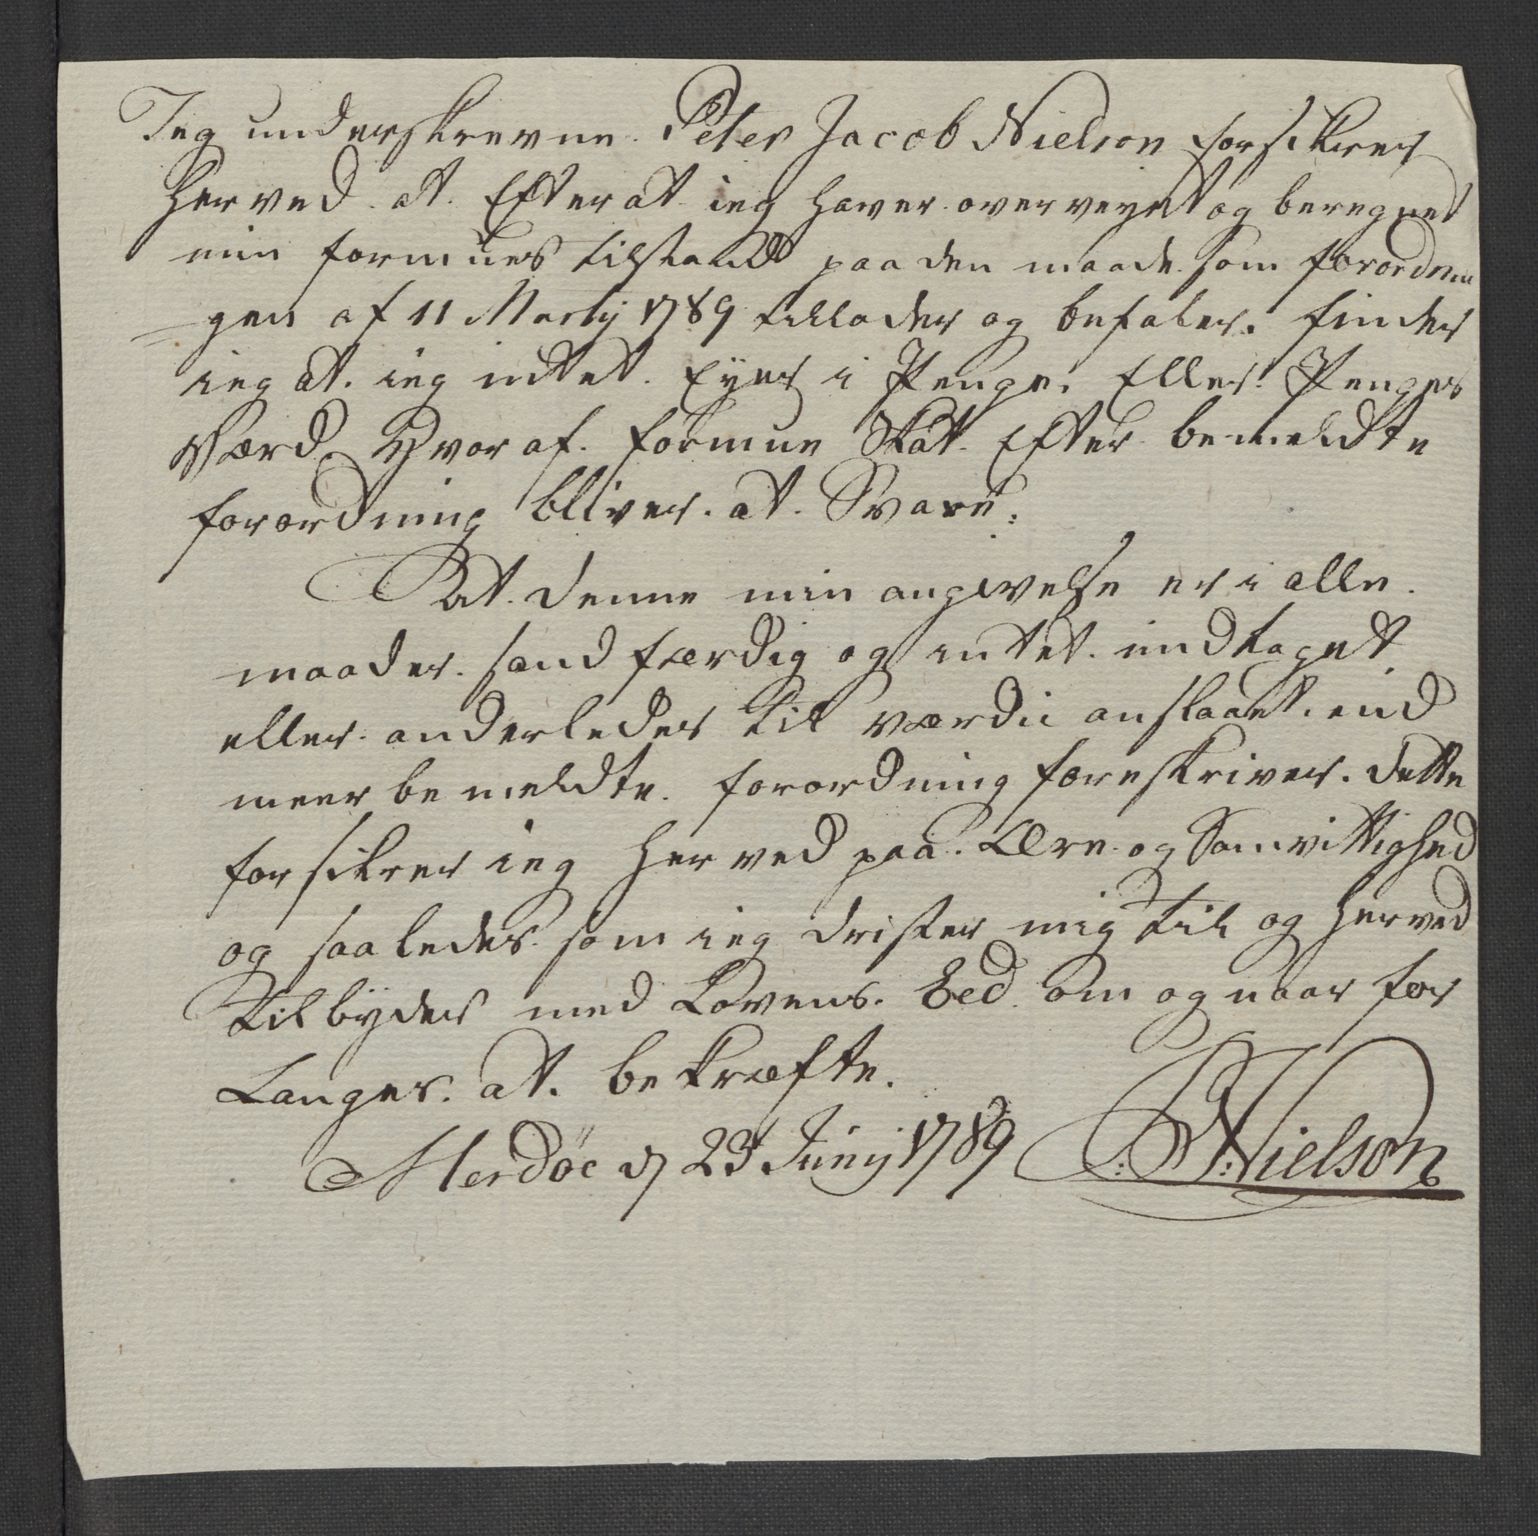 Jeg underskrevne Peter Jacob Nielson forsikrer
herved at Efter at ieg haver overveyet og beregnet
min formues tilstand paa den maade som forordnin
gen af 11 Martij 1789 tillader og befaler. finder
ieg at. ieg intet. Eyer i Penge. Eller. Penges
Værd Hvoraf. formue Skat. Efter bemeldte
forordning bliver. at. Svare:
At. denne min angivelse er i alle.
maader. sandfærdig og intet. indtaget
eller. anderledes til værdie anslaaet. end
meer bemeldte. forordning foreskriver. dette
forsikrer ieg herved paa. Ære. og Samvittighed
og saaledes. som ieg drister mig til og herved
tilbyder med Lovens. Eed om og naar for
Langes. at. bekræfte.
Merdöe d 23 Junij 1789 P: J: Nielson